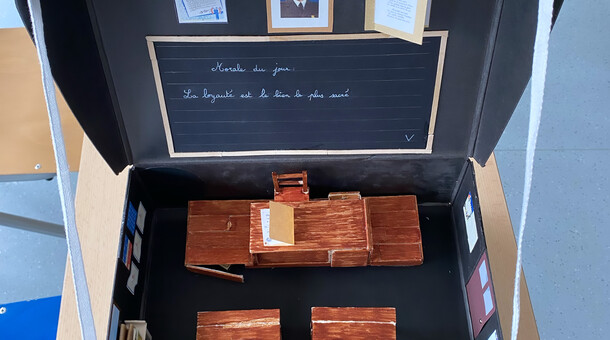 Morale du jour:
La loyauté est le bien le plus sacré
V.